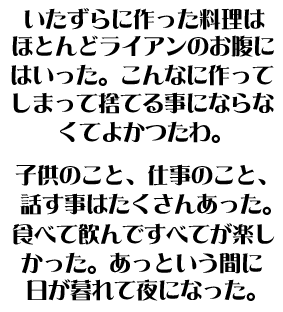 いたずらに作った料理は
ほとんどライアンのお腹に
はいった。こんなに作って
しまって捨てる事にならな
くてよかつたわ。
子供のこと、仕事のこと、
話す事はたくさんあった。
食べて飲んですべてが楽し
かった。あっという間に
日が暮れて夜になった。